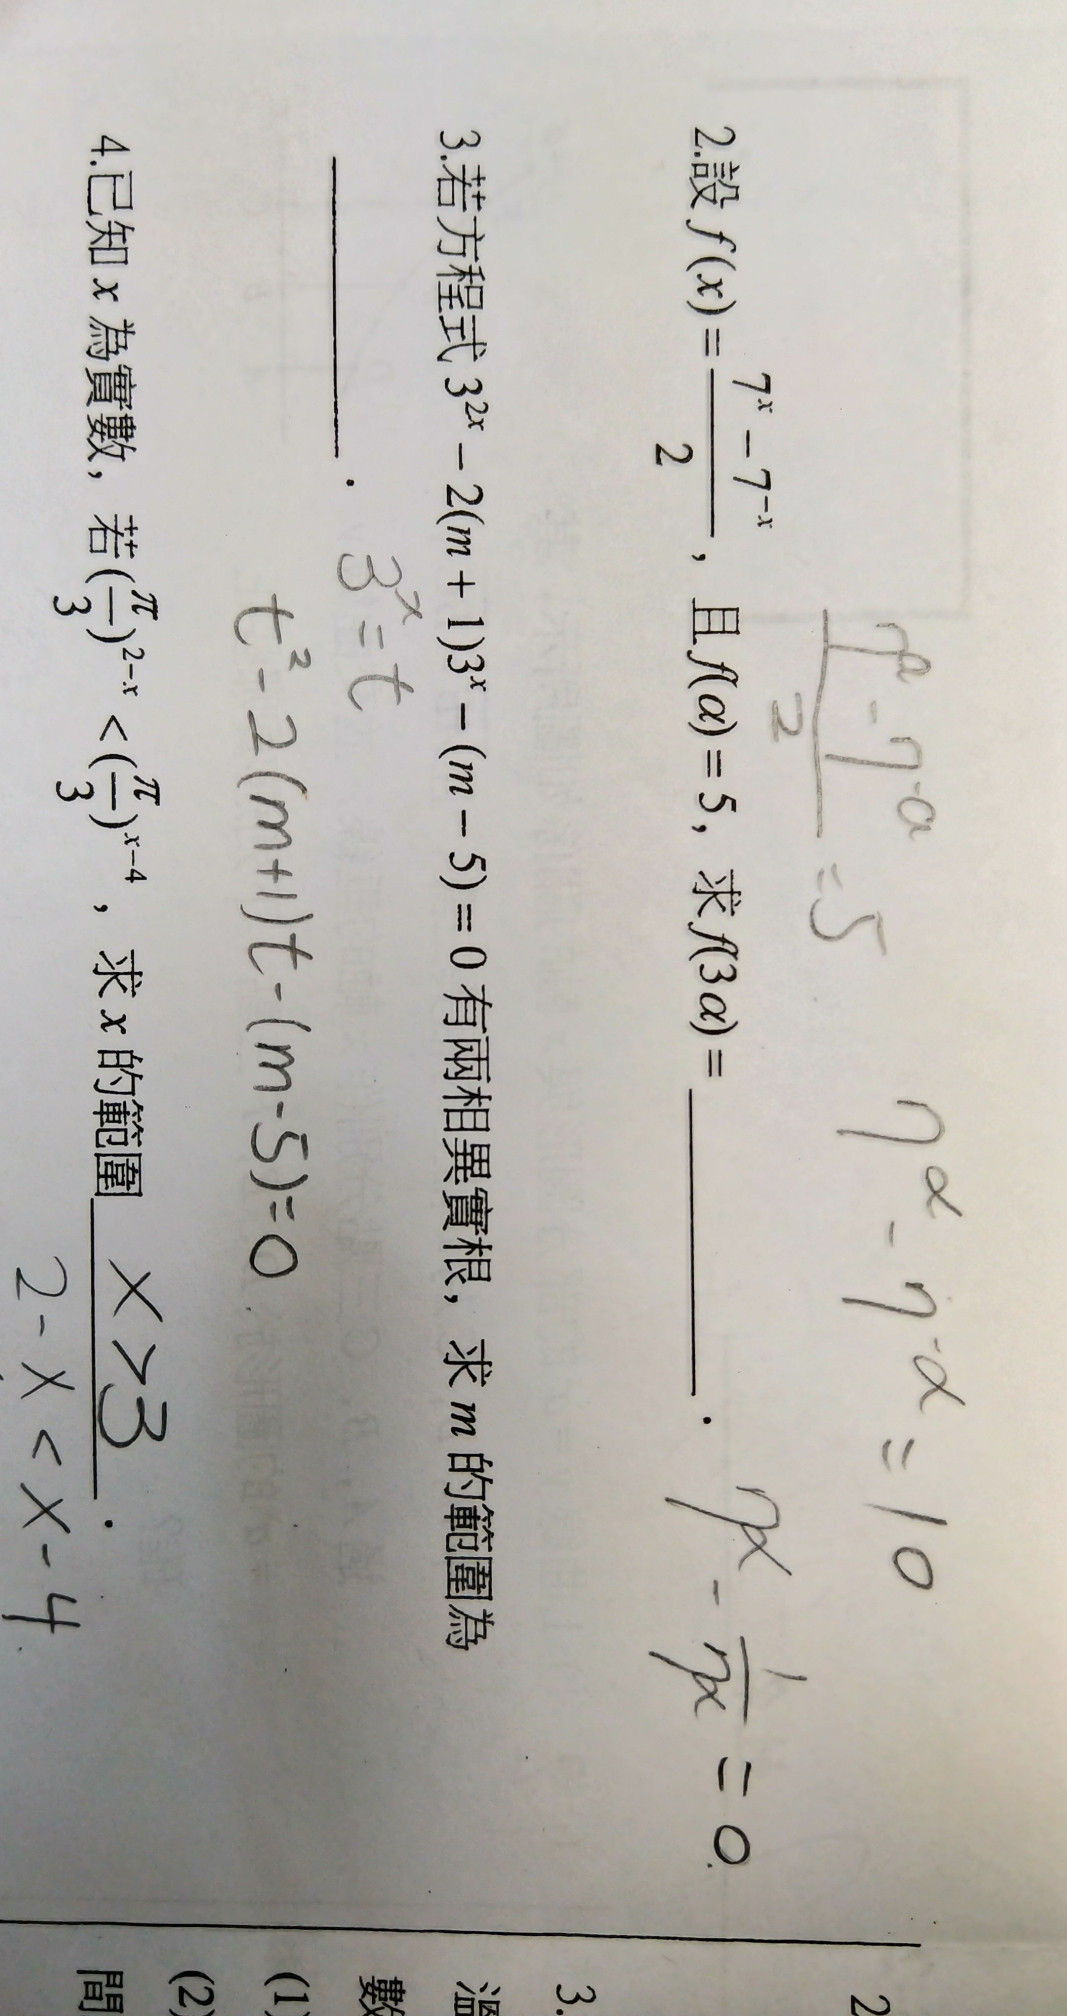 7^α - 7^-α / 2 = 5
7^α - 7^-α = 10
2.設 f(x) = (7^x - 7^-x)/2 , 且 f(α) = 5, 求 f(3α) = ________ .
7^α - 1/7^α = 0.
3.若方程式 3^2x - 2(m + 1)3^x - (m - 5) = 0 有兩相異實根, 求 m 的範圍為
________ .
3^x = t
t² - 2(m+1)t - (m-5) = 0
4.已知 x 為實數, 若 (π/3)^2-x < (π/3)^x-4 , 求 x 的範圍 x > 3 .
2 - x < x - 4
2
3.
溫
數
(1)
(2)
間